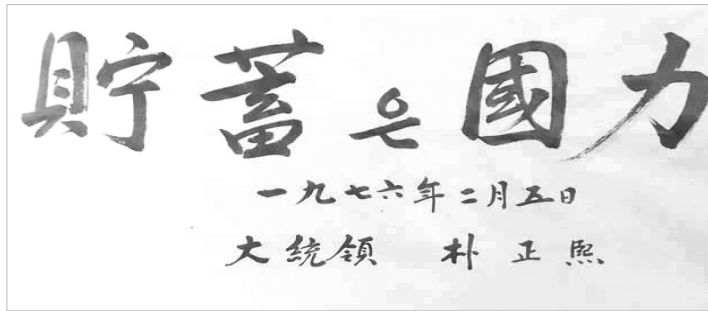 貯蓄은 國力
一九七六年 二月五日
大統領 朴正熙